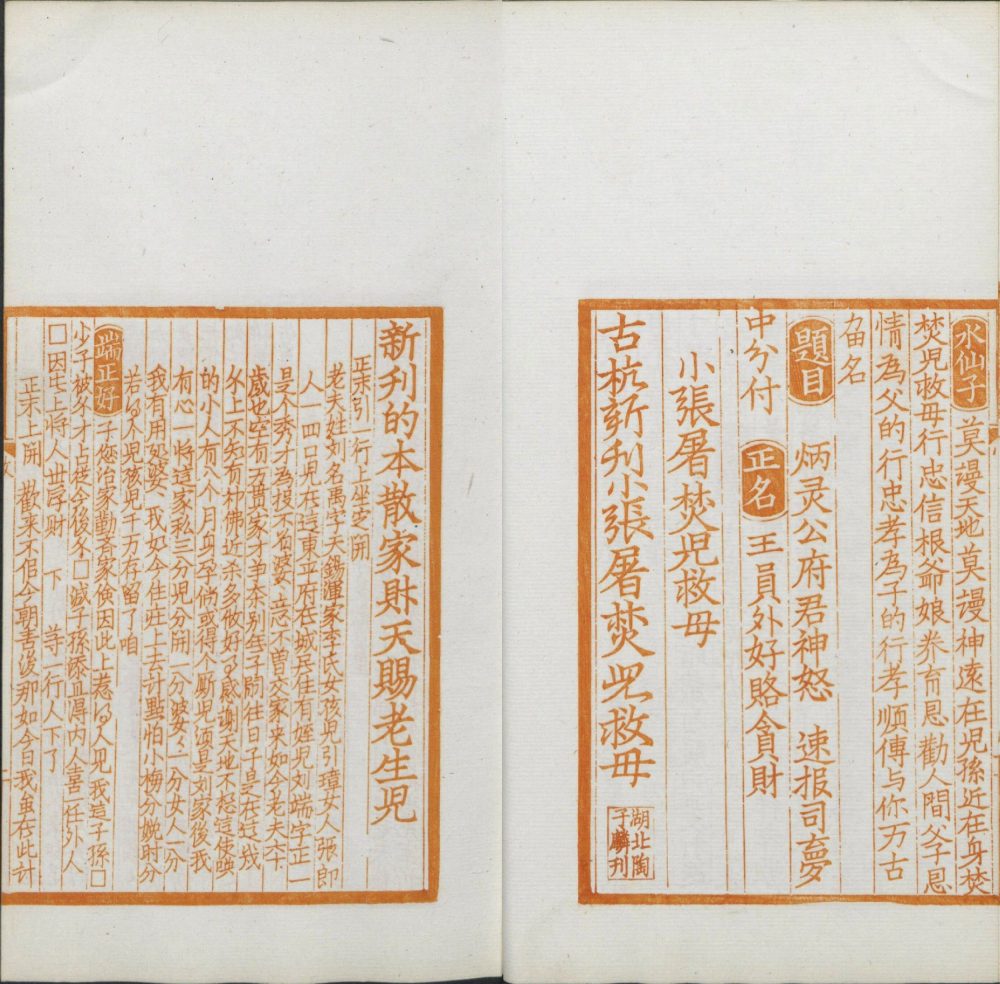 水仙子 莫謾天地莫謾神遠在児孫近在身焚
焚児救母行忠信根爺娘养育恩勸人間父子恩
情為父的行忠孝為子的行孝順傳与你万古
畄名
題目 炳灵公府君神怒 速报司夢
中分付 正名 王員外好賂貪財
小張屠焚児救母
古杭新刋小張屠焚児救母
湖北陶
子麟刋
新刋的本散家財天賜老生児
正末引一行上坐芝開
老夫姓刘名禹字天錫渾家李氏女孩児引璋女人張郎
人一四口児在這東平府在城居住有姪児刘端字正一
是个秀才為投不着婆〻意忘不曽交家来如今老夫六十
歳也空有万貫家才争奈别無子嗣往日子是在这歳
外上不知有神佛近来多做好事感謝天地不想這使喚
的小人有个月身孕倘或得个厮児頃是刘家後我
有心一将這家私三分児分開一分婆〻一分女人一分
我有用処婆〻我如今往庄上去計點怕小梅分娩时分
若的人児孩児千万存留了咱
端正好 子您治家勤吝家俭因此上惹的人見我這子孫□
少子被久才上從今後不□滅子孫添且得内人喜一任外人
□因宅上将人世浮财 下 等一行人下了
正末上開 歡来不但今朝喜後那如今日我虽在此計